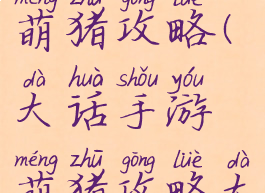 méng zhū gōng lüè
萌猪攻略(
dà huà shǒu yóu
大话手游
méng zhū gōng lüè dà
萌猪攻略大